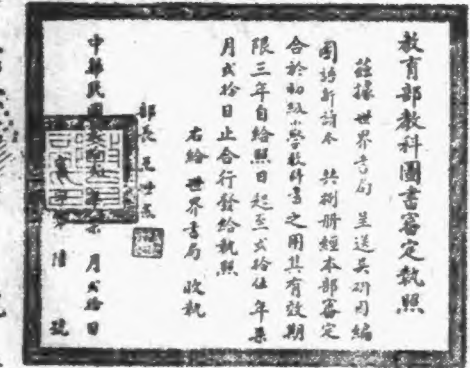 教育部教科圖書審定執照
茲據世界書局呈送吳研因編
國語新讀本 共捌冊經本部審定
合於初級小學教科書之用其有效期
限三年自給照日起至弍拾伍年柒
月弍拾日止合行發給執照
右給 世界書局 收執
部長 王世杰
中華民國 年柒月弍拾日
字第 陸 號